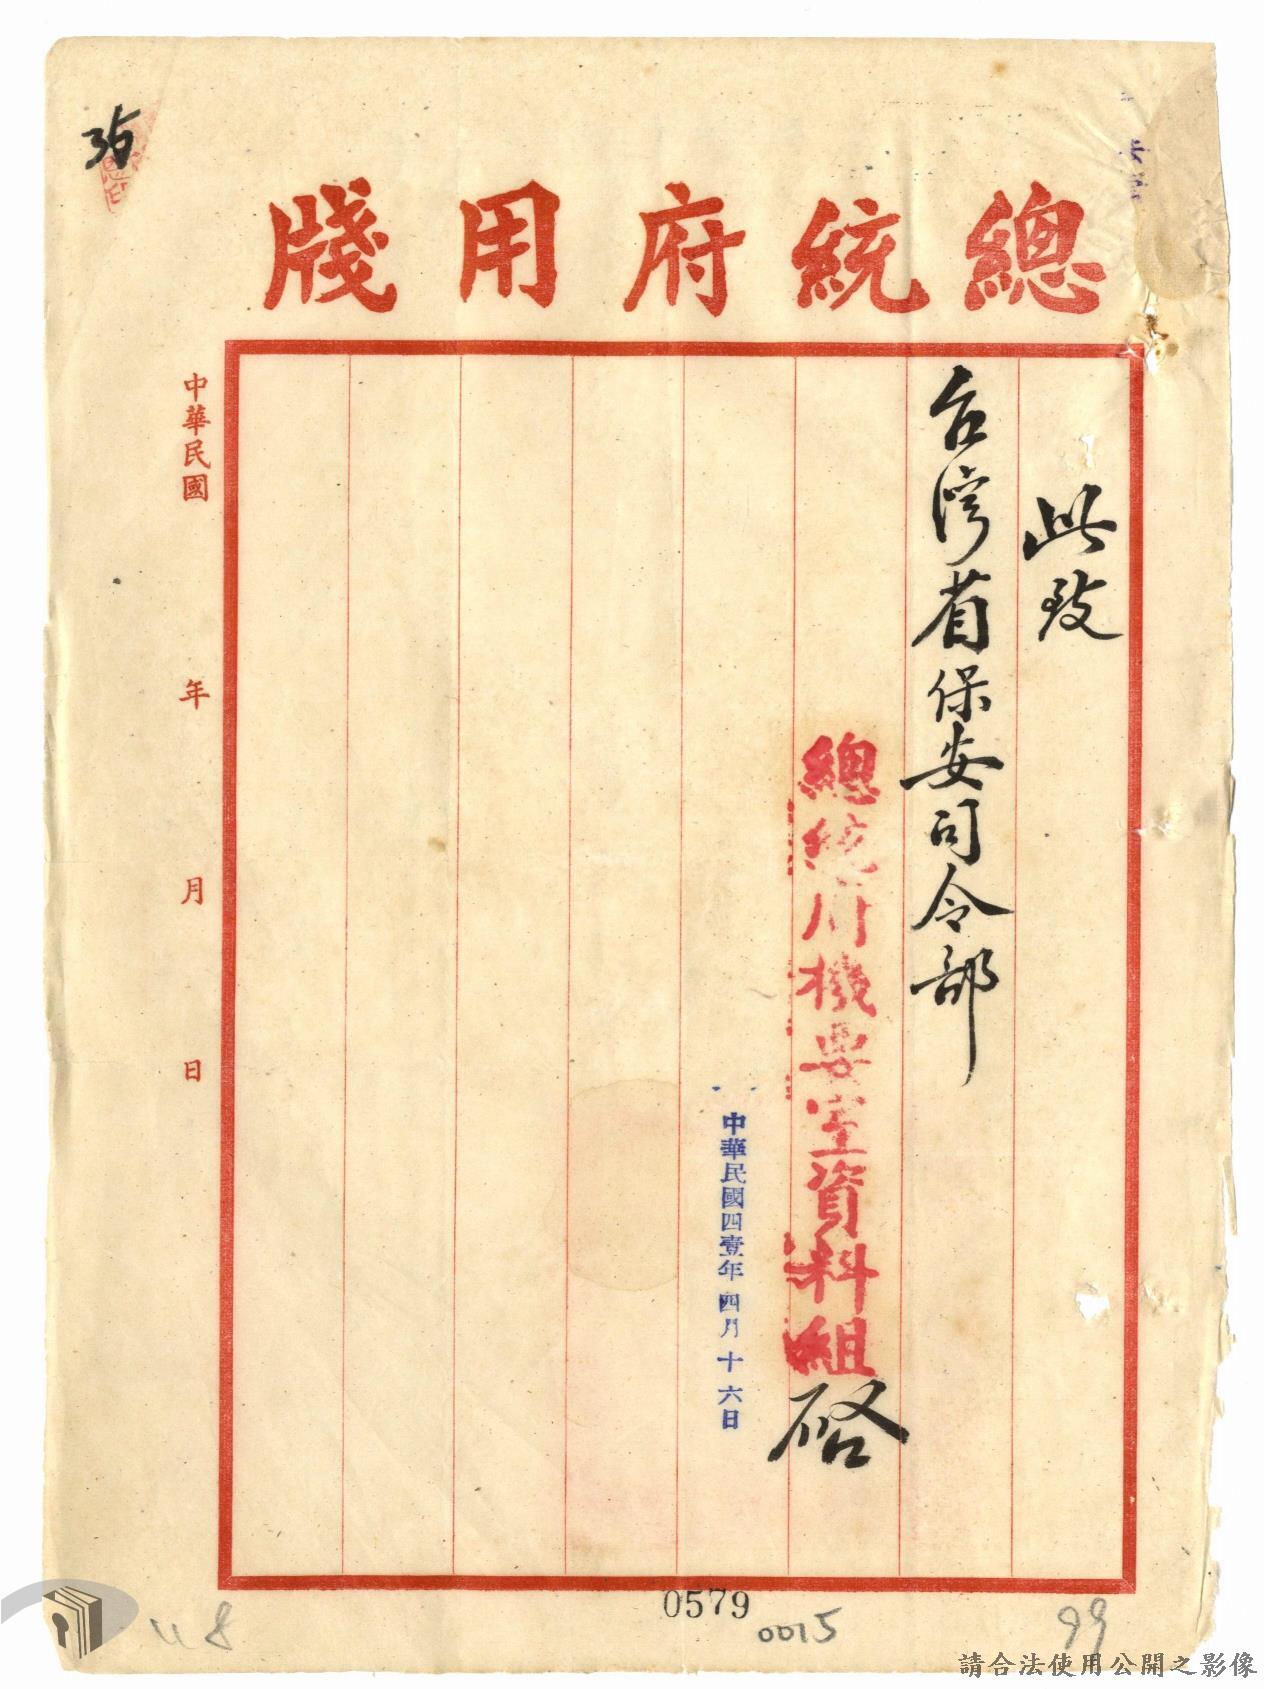 總統府用牋
此致
台灣省保安司令部
總統府機要室資料組
啓
中華民國四壹年四月十六日
中華民國 年 月 日
36
0579
0015
99
請合法使用公開之影像